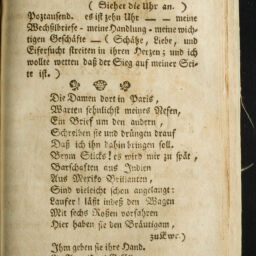 ( Siehet die Uhr an. )
Poztausend. es ist zehn Uhr — — meine
Wechslbriefe - meine Handlung - meine wich-
tigen Geschäfte — ( Schäze, Liebe, und
Eifersucht streiten in ihren Herzen; und ich
wollte wetten daß der Sieg auf meiner Sei-
te ist. )
Die Damen dort in Paris,
Warten sehnlichst meines Nefen,
Ein Brief um den andern,
Schreiben sie und drungen drauf
Daß ich ihn dahin bringen soll.
Beym Sticks! es wird mir zu spät,
Barschaften aus Indien
Aus Mexiko Brillanten,
Sind vieleicht schon angelangt:
Laufer! laßt indeß den Wagen
Mit sechs Roßen vorfahren
Hier haben sie den Bräutigam,
zu K wc.)
Ihm geben sie ihre Hand.